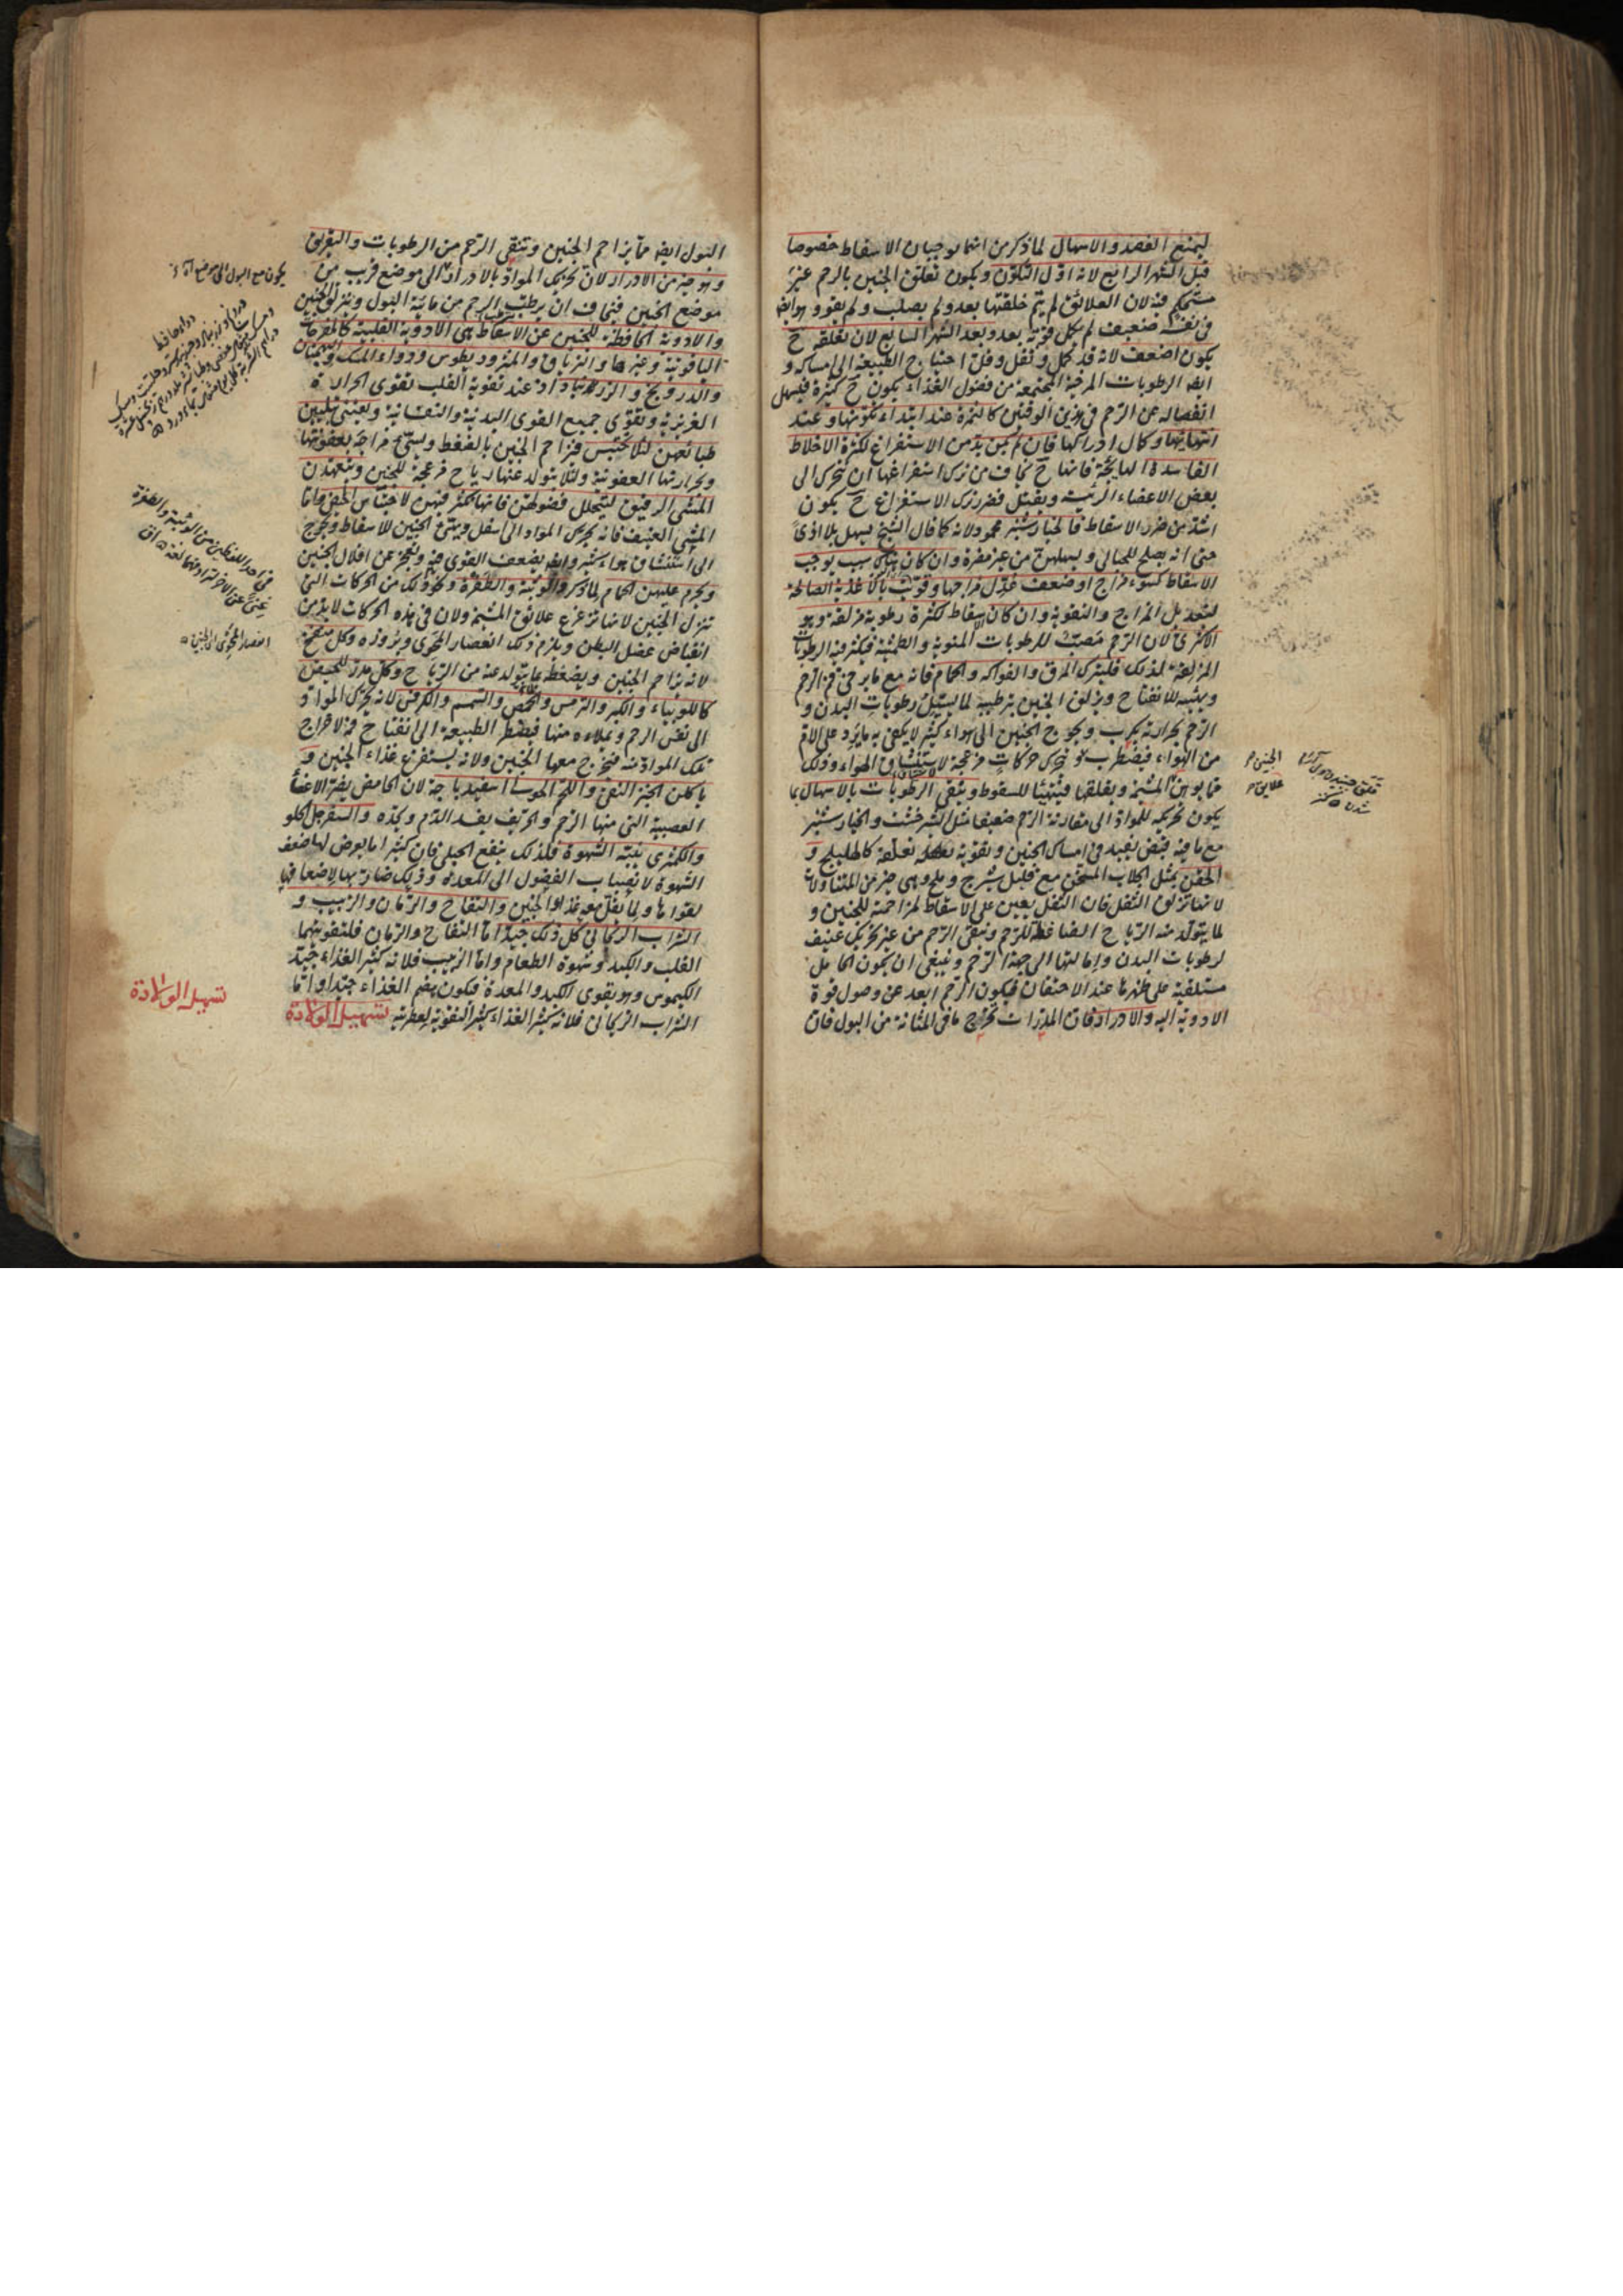 ليمنع الفصد والاسهال لما ذكر من انهما يوجبان الاسقاط خصوصا
قبل الشهر الرابع لانه اول التكون ويكون تعلق الجنين بالرحم غير
مستحكم فيه لان العلائق لم يتم خلقتها بعد ولم يصلب ولم يقو وهو ايضا
في نفسه ضعيف لم يكمل قوته بعد وبعد الشهر السابع لان تعلقه ح
يكون اضعف لانه قد كمل وثقل وقل احتياج الطبيعة الى امساكه و
ايضا الرطوبات المرخية المجتمعة من فضول الغذاء يكون ح كثيرة فيسهل
انفصاله عن الرحم في هذين الوقتين كالثمرة عند ابتداء تكونها وعند
انتهائها وكمال ادراكها فان لم يكن بد من الاستفراغ لكثرة الاخلاط
الفاسدة الهائجة فانها ح يخاف من ترك استفراغها ان يتحرك الى
بعض الاعضاء الرئيسة ويقتل فضرر ترك الاستفراغ ح يكون
اشد من ضرر الاسقاط فالخيارشنبر محمود لانه كما قال الشيخ يسهل بلا اذى
حتى انه يصلح للحبالى ويسهلهن من غير مضرة وان كان هناك سبب يوجب
الاسقاط كسوء مزاج او ضعف عدل مزاجها وقويت بالاغذية الصالحة
لتعديل المزاج والتقوية وان كان الاسقاط لكثرة رطوبة مزلقة وهو
الاكثرى لان الرحم مصب للرطوبات المنوية والطمثية فيكثر فيه الرطوبات
المزلقة لذلك فليترك المرق والفواكه والحمام فانه مع ما يرخى فم الرحم
ويهيئه للانفتاح ويزلق الجنين بترطيبه لما يسيل رطوبات البدن و
الرحم بحرارته يكرب ويحوج الجنين الى هواء كثير لا يكفى به ما يرد على الام
من الهواء فيضطرب و يتحرك حركات مزعجة لاستنشاق الهواء وذلك
مما يوهن المشيمة ويقلقها فيتهيأ للسقوط وينقى الرطوبات بالاسهال بما
يكون تحريكه للمواد الى مقاربة الرحم ضعيفا مثل الشيرخشت والخيارشنبر
مع ما فيه قبض يفيد في امساك الجنين وتقوية تعلقه كالهليلج و
الحقن بمثل الجلاب المسخن مع قليل شيرج وملح وهى خير من المتناولات
لانها تزلق الثفل فان الثفل يعين على الاسقاط لمزاحمته للجنين و
لما يتولد منه الرياح الضاغطة للرحم وينقى الرحم من غير تحريك عنيف
لرطوبات البدن وامالتها الى جهة الرحم وينبغى ان يكون الحامل
مستلقية على ظهرها عند الاحتقان فيكون الرحم ابعد عن وصول قوة
الادوية اليه والادرار فان المدرات تخرج ما في المثانة من البول فان
الجنين
علايق
البول ايضا مما يزاحم الجنين وتنقى الرحم من الرطوبات والتعريق
وهو خير من الادرار لان تحريك المواد بالادرار الى موضع قريب من
موضع الجنين فيخاف ان يرطب الرحم من مائية البول ويزلق الجنين
والادوية الحافظة للجنين عن الاسقاط هى الادوية القلبية كالمفرحات
الياقوتية وغيرها والترياق والمثرودیطوس ودواء المسك والبهمنان
والدرونج والزرنباد اذ عند تقوية القلب تقوى الحرارة
الغريزية وتقوى جميع القوى البدنية والنفسانية ويعتنى بتليين
طبائعهن لئلا تحتبس فيزاحم الجنين بالضغط ويسخن مزاجه بعفونتها
وحرارتها العفونية ولئلا يتولد عنها رياح مزعجة للجنين ويتعهدن
المشى الرفيق ليتحلل فضولهن فانها تكثر فيهن لاحتباس الحيض واما
المشى العنيف فانه يحرك المواد الى اسفل ويهيئ الجنين للاسقاط ويحوج
الى استنشاق هواء كثير وايضا يضعف القوى فيعجز عن اقلال الجنين
ويحرم عليهن الحمام لما ذكر والوثبة والطفرة ونحو ذلك من الحركات التى
تنزل الجنين لانها تزعزع علائق المشيمة ولان في هذه الحركات لابد من
انقباض عضل البطن ويلزم ذلك انعصار المحوى وبروزه وكل منفخ
لانه يزاحم الجنين ويضغطه بما يتولد عنه من الرياح وكل مدر للحيض
كاللوبياء والكبر والترمس والحمص والسمسم والكرفس لانه يحرك المواد
الى نفس الرحم ويملاءه منها فيضطر الطبيعة الى انفتاح فمه لاخراج
تلك المواد منه فيخرج معها الجنين ولانه يستفرغ غذاء الجنين و
ياكلن الخبز النقى واللحم الحوليا اسفيدباجة لان الحامض يضر الاعضاء
العصبية التى منها الرحم والحريف يفسد الدم ويحده والسفرجل الحلو
والكمثرى ينبه الشهوة فلذلك ينفع الحبلى فان كثيرا ما يعرض لها ضعف
الشهوة لانصباب الفضول الى المعدة وذلك ضار بها لاضعافها
لقواها ولما يقل معه غذاء الجنين والتفاح والرمان والزبيب و
الشراب الريحانى كل ذلك جيد اما التفاح والرمان فلتقويتهما
القلب والكبد وشهوة الطعام واما الزبيب فلانه كثير الغذاء جيد
الكيموس وهو يقوى الكبد والمعدة فيكون هضم الغذاء جيدا واما
الشراب الريحانى فلانه كثير الغذاء كثير التقوية لعطريته تسهيل الولادة
تسهيل الولادة